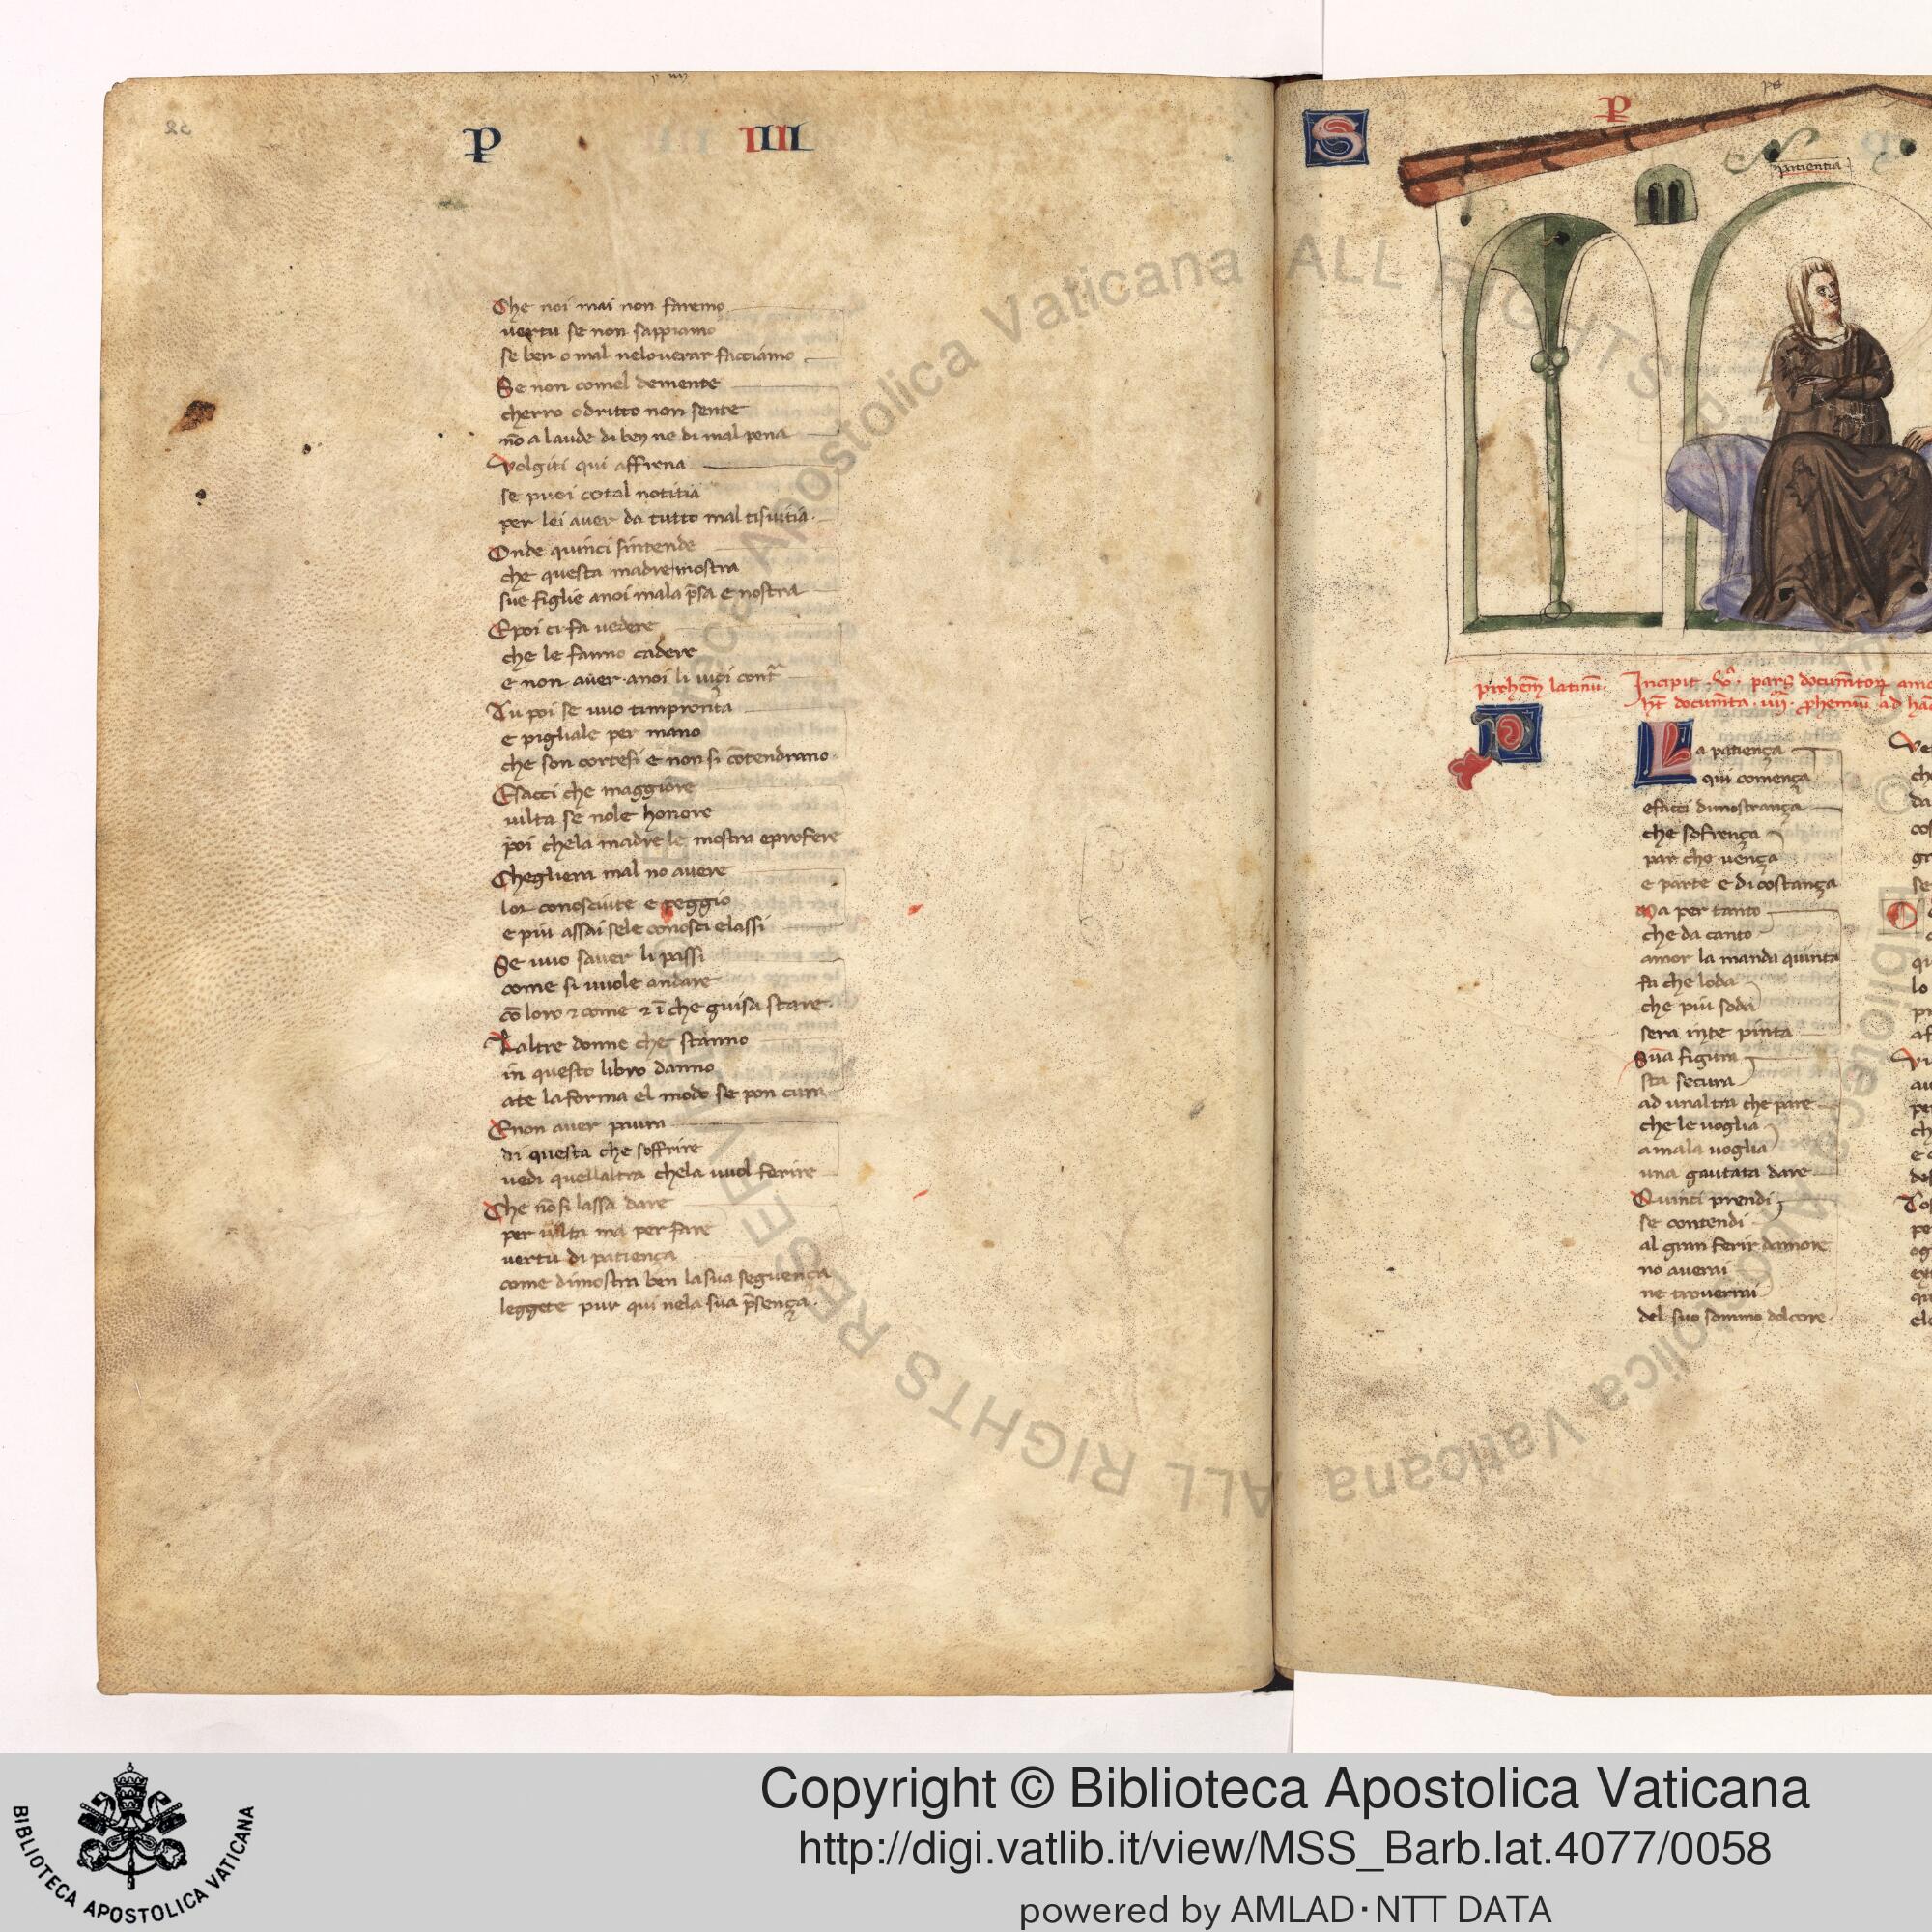 P IIII
Che noi mai non faremo
uertu se non sappiamo
se ben o mal nelouerar facciamo
Se non comel demente
cherro odritto non sente
nō a laude di ben ne di mal pena
Volgiti qui affrena
se puoi cotal notitia
per lei auer da tutto mal tisuitia.
Onde quinci sintende
che questa madre mostra
sue figlie anoi mala p̄sa e nostra
Epoi ci fa uedere
che le fanno cadere
e non auer anoi li uiçi
Tu poi se uuo timpronta
e pigliale per mano
che son cortesi e non si cōtendrano.
Efacci che maggiore
uilta se nole honore
poi chela madre le mostra eprofere
Chegliera mal no auere
lor conosciute e peggio
e piu assai sele conosci elassi
Se uuo sauer li passi
come si uuole andare
cō loro ⁊ come ⁊ ī che guisa stare.
Laltre donne che stanno
in questo libro danno
ate laforma el modo se pon cura
Enon auer paura
di questa che soffrire
uedi quellaltra chela uuol ferire
Che nōsi lassa dare
per uilta ma per fare
uertu di patiença
come dimostra ben lasua seguença
leggete pur qui nela sua p̄sença.
S
P
patientia
prohem̄ latinū.
Incipit .v.ª pars
documēta .iiii. ad
P
La patiença
qui comença
efacci dimostrança
che sofrença
par che uença
e parte e di costança
Ma per tanto
che da canto
amor la manda quinta
fa che loda
che piu soda
sera inte pinta
Sua figura
sta secura
ad unaltra che pare
che le uoglia
amala uoglia
una gautata dare
Quinci prendi
se contendi
al gran ferir damore
no auerai
ne trouerrai
del suo sommo dolcore.
ALL RIGHTS RESERVED
Biblioteca Apostolica Vaticana
BIBLIOTECA APOSTOLICA VATICANA
Copyright © Biblioteca Apostolica Vaticana
http://digi.vatlib.it/view/MSS_Barb.lat.4077/0058
powered by AMLAD·NTT DATA